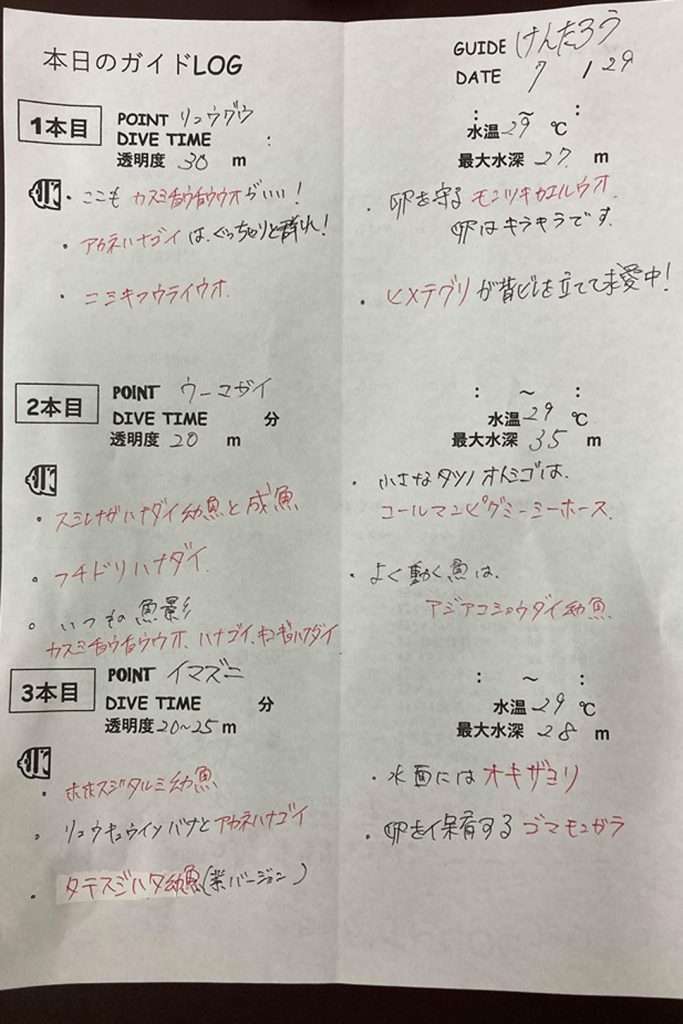 本日のガイドLOG
GUIDE けんたろう
DATE 7 / 29
1本目
POINT リュウグウ
DIVE TIME :
透明度 30 m
: ~ :
水温 29 ℃
最大水深 27 m
・ここも カスミチョウチョウウオ がいい!
・アカネハナゴイ は、ぐっちゃりと群れ!
・ニシキフウライウオ.
・卵を守る モンツキカエルウオ.
卵はキラキラです.
・ヒメテグリ が背ビレを立てて求愛中!
2本目
POINT ウーマガイ
DIVE TIME 分
透明度 20 m
: ~ :
水温 29 ℃
最大水深 35 m
・スミレナガハナダイ幼魚と成魚
・フチドリハナダイ.
・いつもの魚影
カスミチョウチョウウオ、ハナゴイ、キンギョハナダイ
・小さなタツノオトシゴは、
コールマンピグミーシーホース.
・よく動く魚は、
アジアコショウダイ幼魚
3本目
POINT イマズニ
DIVE TIME 分
透明度 20~25 m
: ~ :
水温 29 ℃
最大水深 28 m
・ホホスジタルミ幼魚
・リュウキュウインバナとアカネハナゴイ
・タテスジハタ幼魚(バージョン)
・水面には オキザヨリ
・卵を保育する ゴマモンガラ